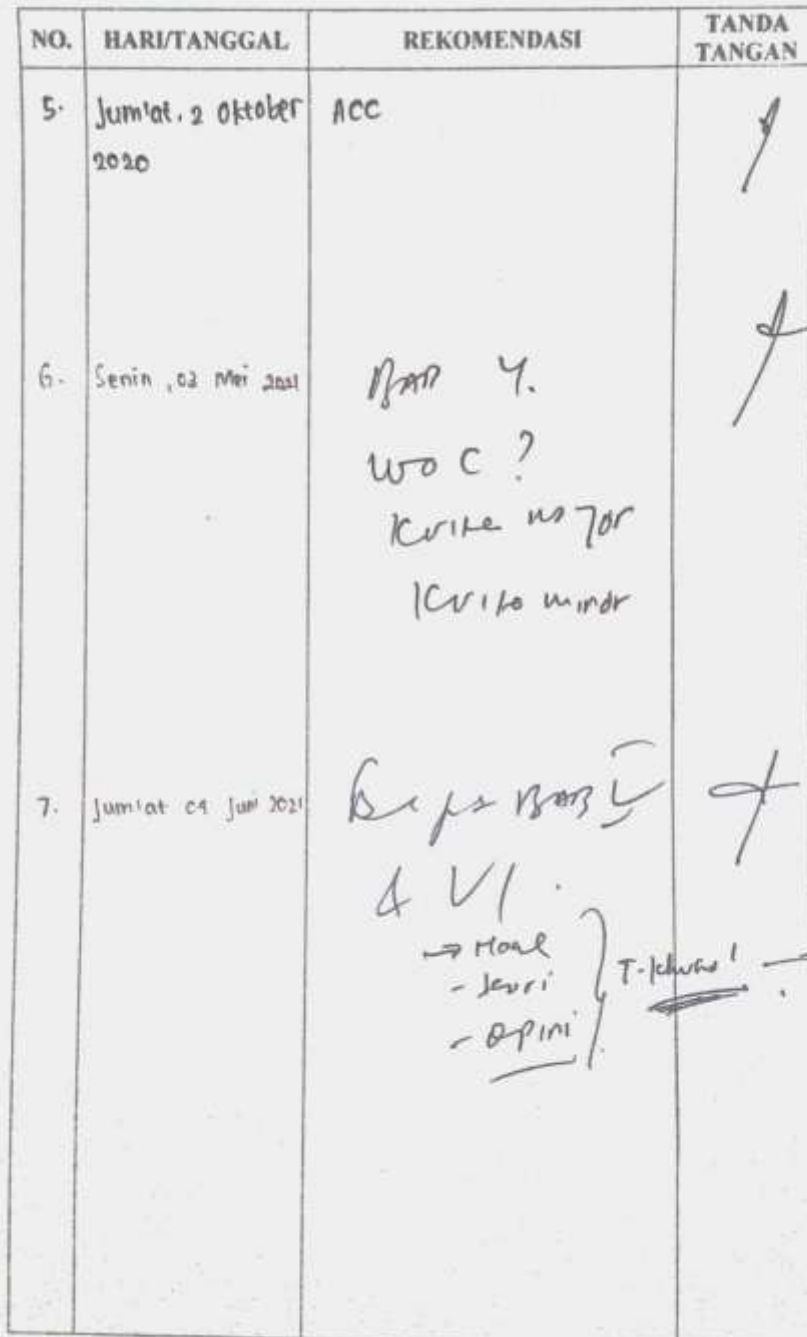 NO. HARI/TANGGAL REKOMENDASI TANDA TANGAN
5. Jum'at, 2 Oktober ACC
2020
6. Senin, 03 Mei 2021 BAB 4.
WOC ?
mayor
minor
7. Jum'at 04 Juni 2021 BAB V
& VI.
→ Hasil
- Teori
- Opini